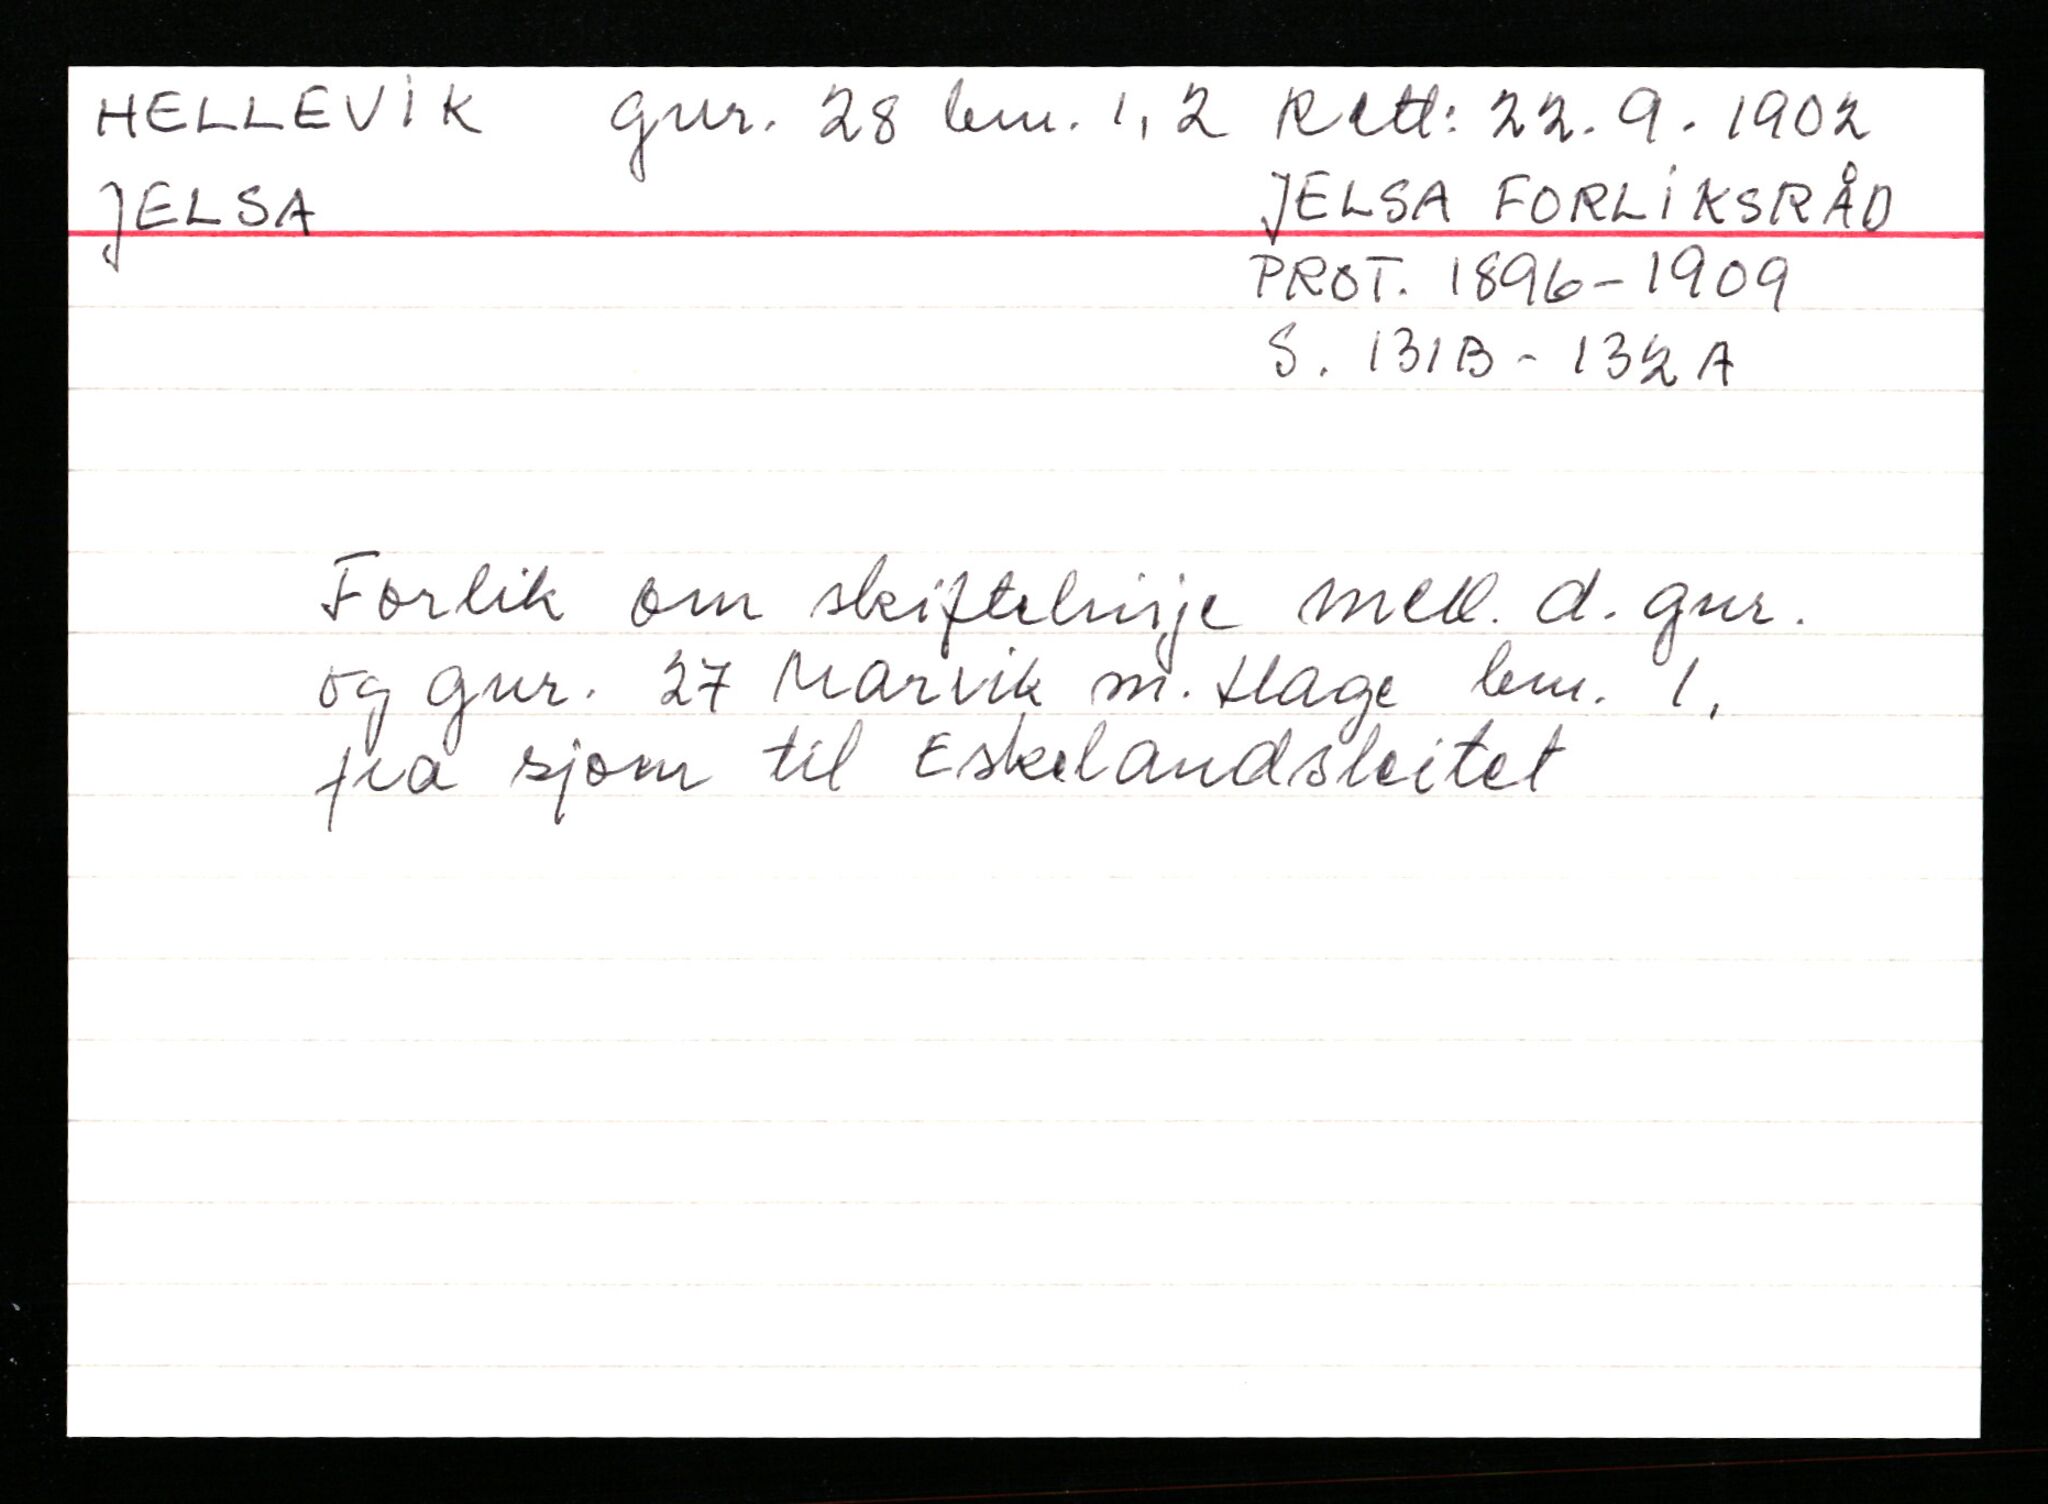 HELLEVIK gnr. 28 bnr. 1, 2 Rett: 22. 9. 1902
JELSA JELSA FORLIKSRÅD
PROT. 1896-1909
S. 131B - 132A
Forlik om skiftelinje mell. d. gnr.
og gnr. 27 Marvik m. Hage bnr. 1,
fra sjøen til Eskelandsleitet